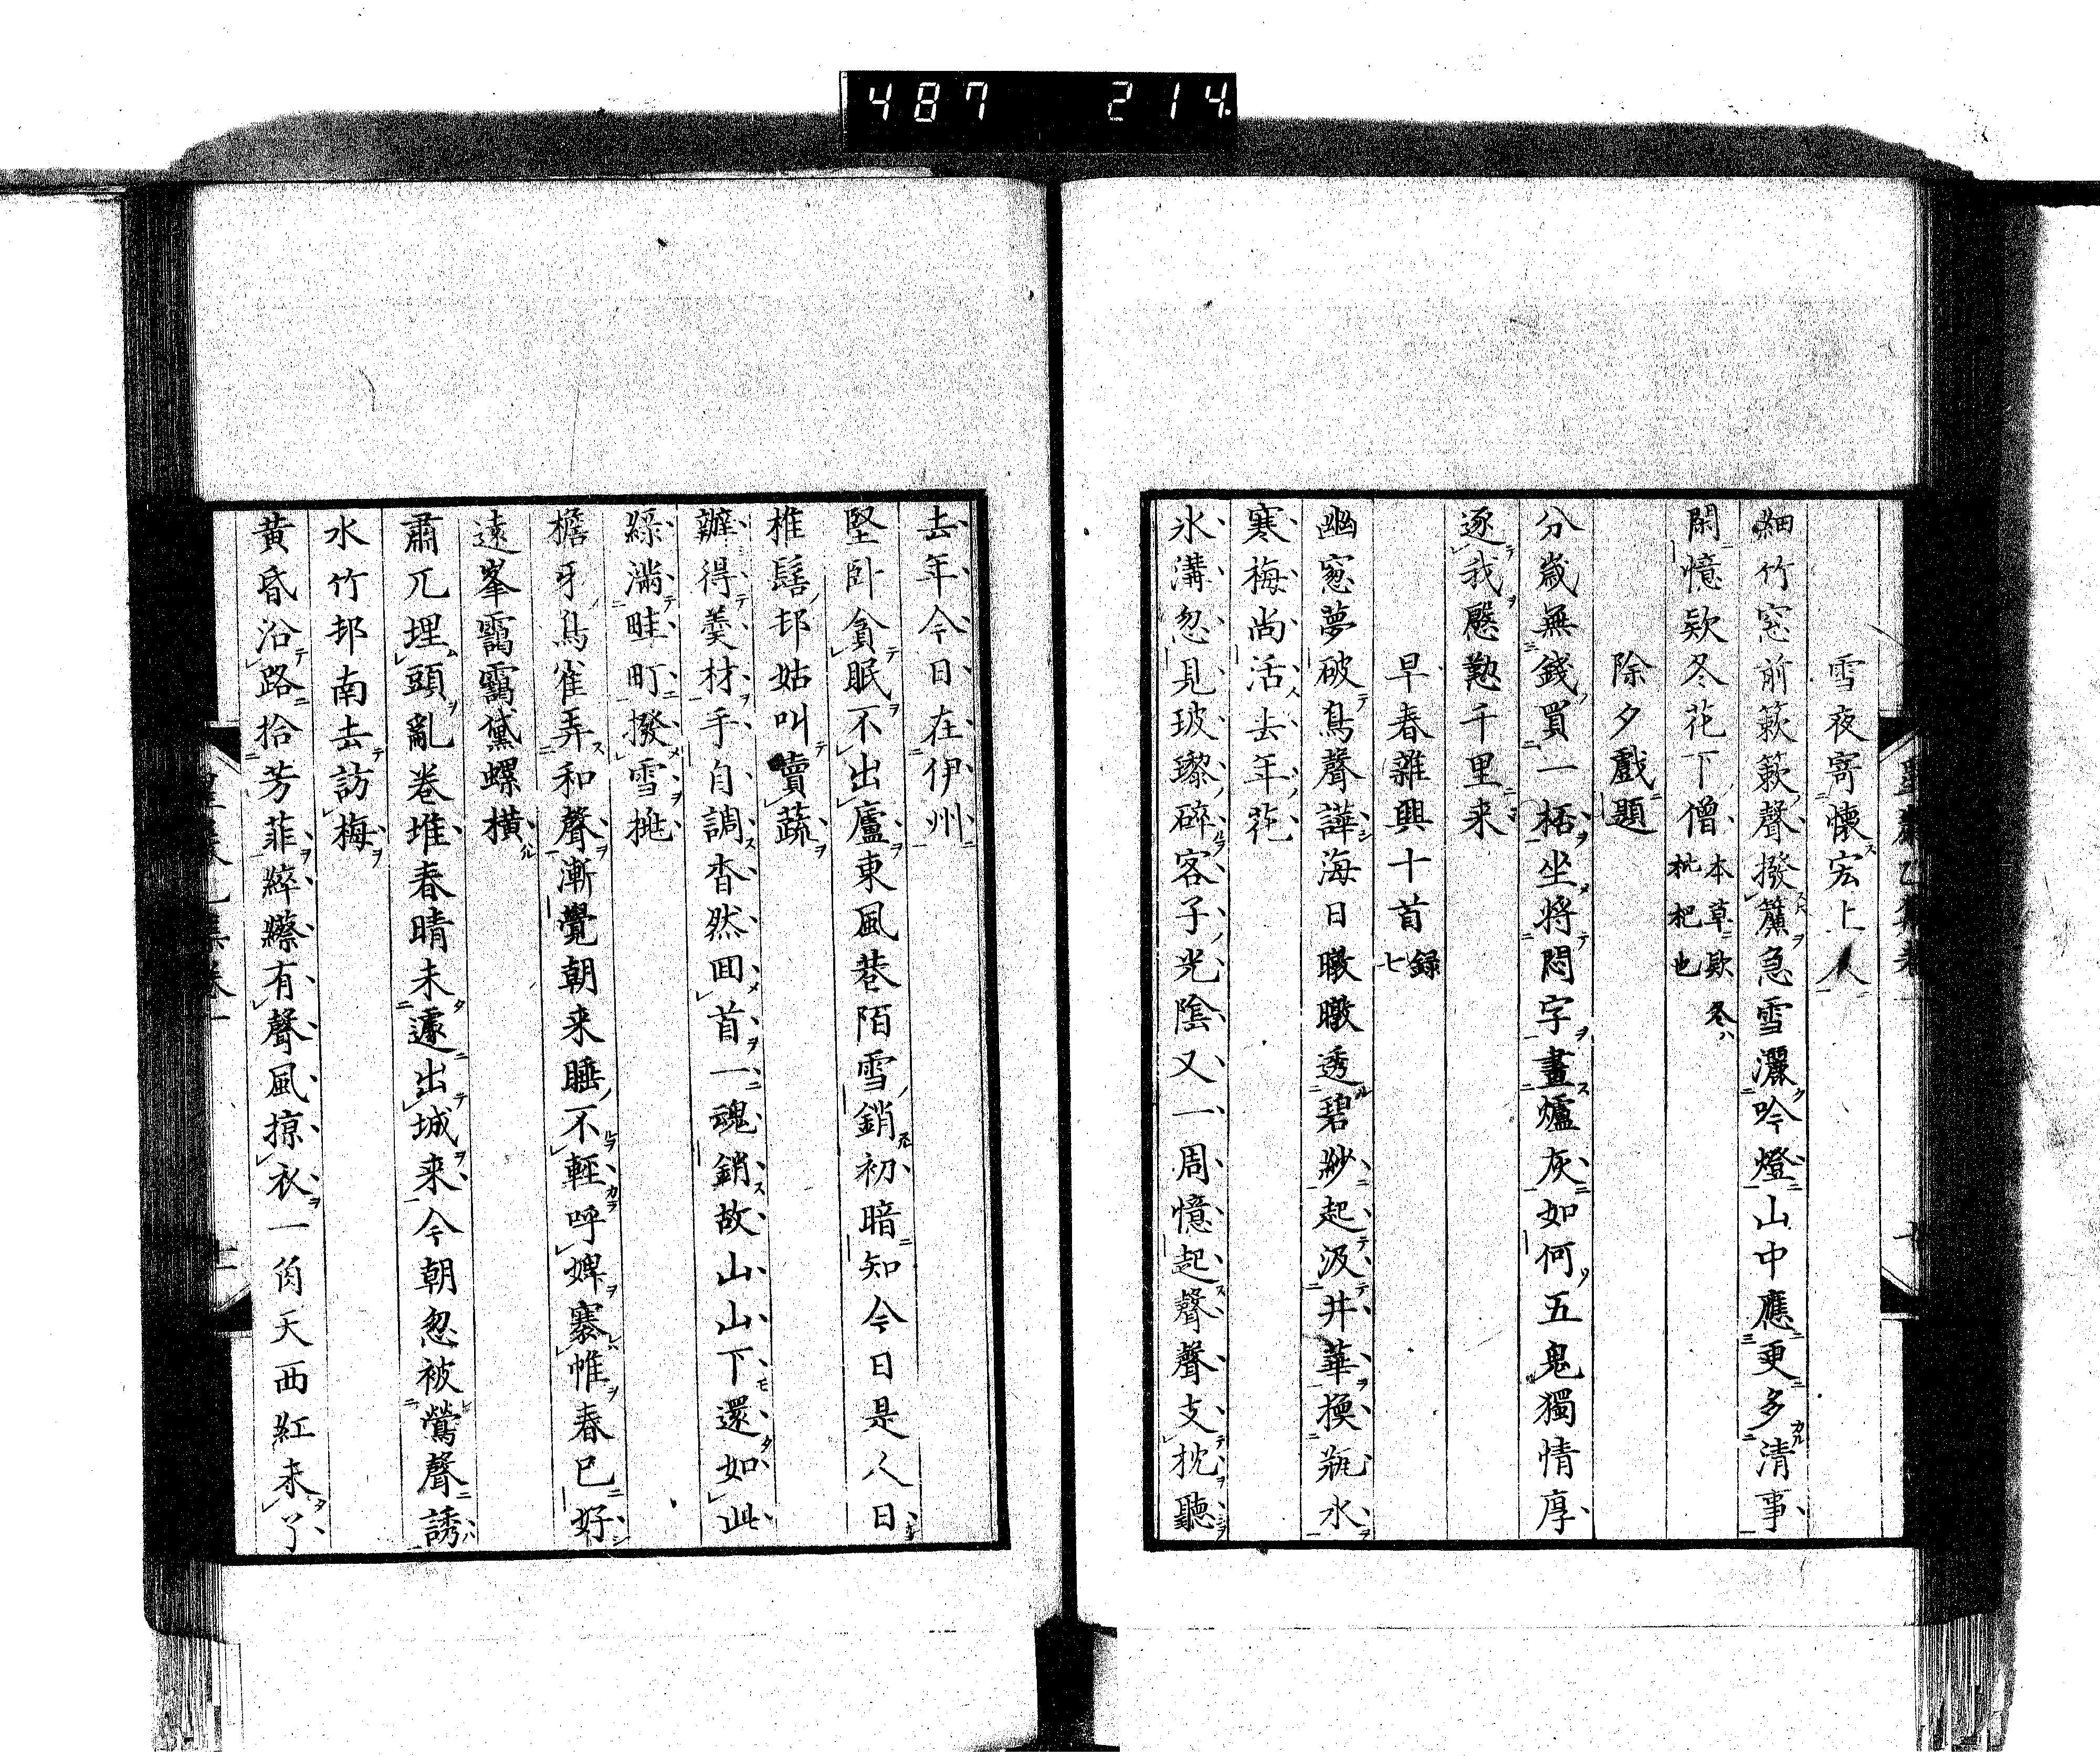 487 214
雪夜寄懷宏上人
細竹窓前簌簌聲撥簾急雪灑吟燈山中應更多清事
閑憶欵冬花下僧 本草欵冬ハ枇杷也
除夕戲題
分歳無錢買一桮坐將悶字畫爐灰如何五鬼獨情厚
逐我慇懃千里来
早春雜興十首 録七
幽窓夢破鳥聲譁海日暾暾透碧紗起汲井華換瓶水
寒梅尚活去年花
氷溝忽見玻瓈碎客子光陰又一周憶起聲聲支枕聽
去年今日在伊州
堅卧貪眠不出廬東風巷陌雪銷初暗知今日是人日
椎髻邨姑叫賣蔬
辦得羹材手自調杳然回首一魂銷故山山下還如此
綠滿畦町撥雪挑
檐牙鳥雀弄和聲漸覺朝来睡不輕呼婢褰帷春已好
遠峯靄靄黛螺橫
肅兀埋頭亂卷堆春晴未遽出城来今朝忽被鶯聲誘
水竹邨南去訪梅
黄昏沿路拾芳菲綷縩有聲風掠衣一角天西紅未了